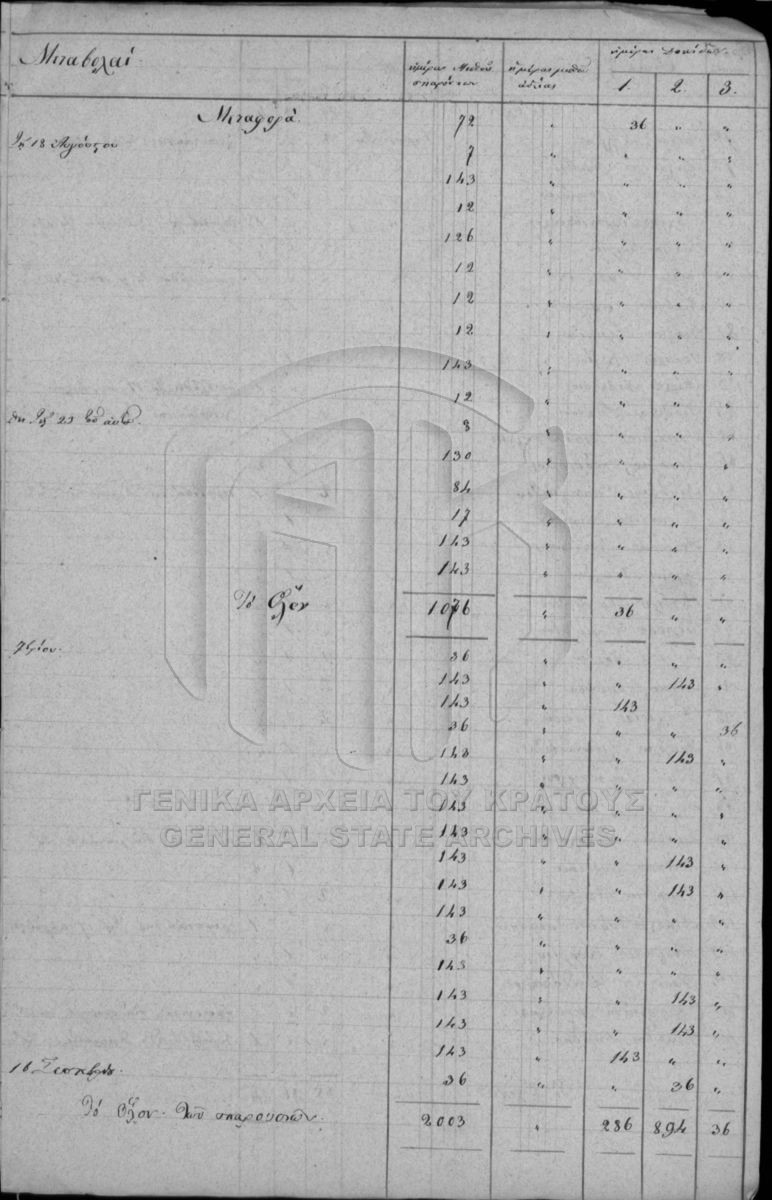 Μεταβολαί
ἡμέραι μισθοῦ παρόντων
ἡμέραι μισθοῦ ἀδείας
ἡμέραι
1. 2. 3.
Μεταφορά. 72 " 36 " "
Τῇ 18 Αὐγούστου 7 " " " "
143 " " " "
12 " " " "
126 " " " "
12 " " " "
12 " " " "
12 " " " "
143 " " " "
12 " " " "
τῇ 23 τοῦ αὐτοῦ. 8 " " " "
130 " " " "
84 " " " "
17 " " " "
143 " " " "
143 " " " "
Τό ὅλον 1076 " 36 " "
7βρίου. 36 " " " "
143 " " 143 "
143 " 143
36 " " " 36
143 " " 143 "
143 " " " "
143 " " " "
143 " " " "
143 " " 143 "
143 " " 143 "
143 " " " "
36 " " " "
143 " " " "
143 " " 143 "
143 " " 143 "
143 " 143 " "
18 Σεπτεμβρίου. 36 " " 36 "
Τό ὅλον τῶν παρουσιῶν. 2003 " 286 894 36
ΓΕΝΙΚΑ ΑΡΧΕΙΑ ΤΟΥ ΚΡΑΤΟΥΣ
GENERAL STATE ARCHIVES